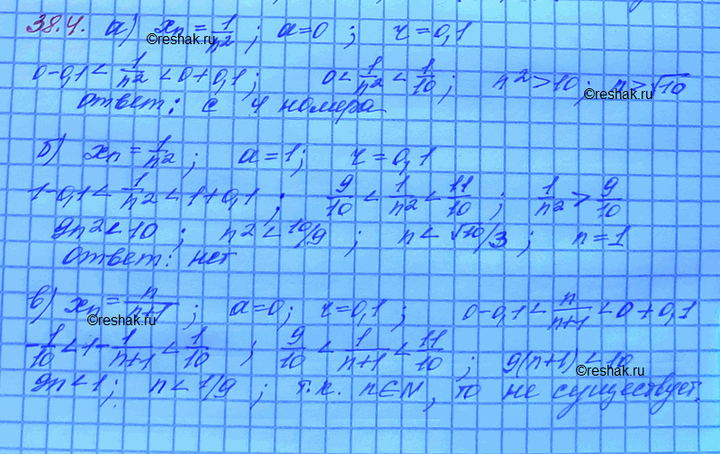 38.4. а) xₙ = 1/n² ; a=0 ; r=0,1
©reshak.ru
0-0,1 < 1/n² < 0+0,1 ; 0 < 1/n² < 1/10 ; n² > 10 ; n > √10
©reshak.ru
ответ: с 4 номера
б) xₙ = 1/n² ; a=1 ; r=0,1
©reshak.ru
1-0,1 < 1/n² < 1+0,1 ; 9/10 < 1/n² < 11/10 ; 1/n² > 9/10
9n² < 10 ; n² < 10/9 ; n < √10/3 ; n=1
ответ: нет
в) xₙ = n/n+1 ; a=0 ; r=0,1 ; 0-0,1 < n/n+1 < 0+0,1
©reshak.ru
-1/10 < 1-1/n+1 < 1/10 ; 9/10 < 1/n+1 < 11/10 ; 9(n+1) < 10
©reshak.ru
9n < 1 ; n < 1/9 ; т.к. n∈N, то не существует.